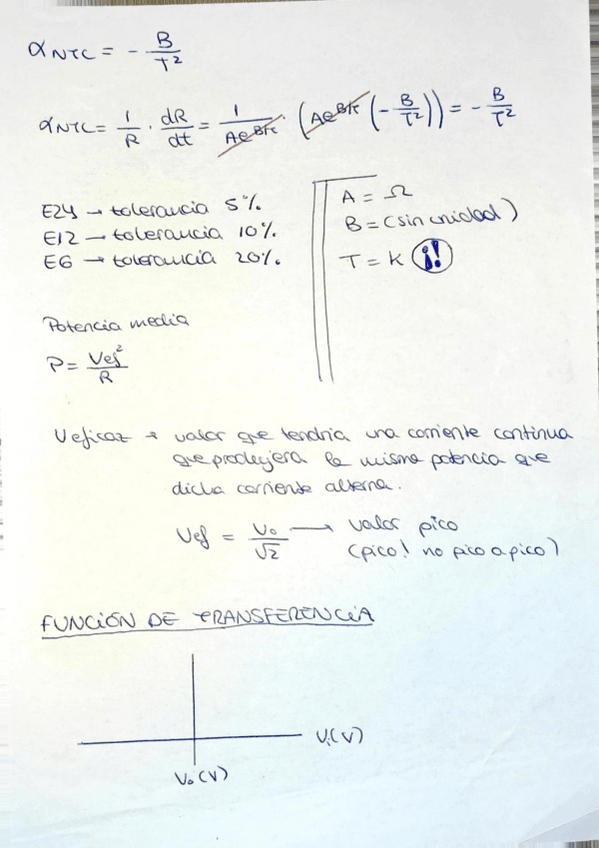 α NTC = - B/T²
α NTC = 1/R · dR/dt = 1/Ae^B/t · (Ae^B/t (- B/T²)) = - B/T²
E24 → tolerancia 5%.
E12 → tolerancia 10%.
E6 → tolerancia 20%.
A = Ω
B = (sin unidad)
T = K ¡!
Potencia media
P = Vef²/R
Veficaz → valor que tendria una corriente continua
que produjera la misma potencia que
dicha corriente alterna.
Vef = Vo/√2 → valor pico
(pico! no pico a pico)
FUNCIÓN DE TRANSFERENCIA
Vi(V)
Vo(V)